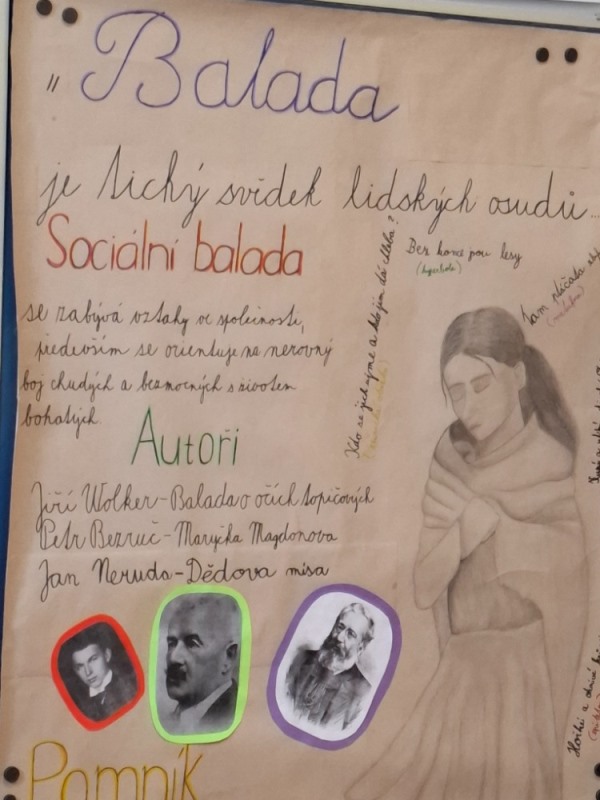 " Balada
je tichý svědek lidských osudů...
Sociální balada
se zabývá vztahy ve společnosti,
především se orientuje na nerovný
boj chudých a bezmocných s životem
bohatých.
Autoři
Jiří Wolker-Balada o očích topičových
Petr Bezruč-Maryčka Magdonova
Jan Neruda-Dědova mísa
Pomník
Kdo se jich ujme a kdo jim dá chleba?
Bez konce jsou lesy
(hyperbola)
Tam plácala